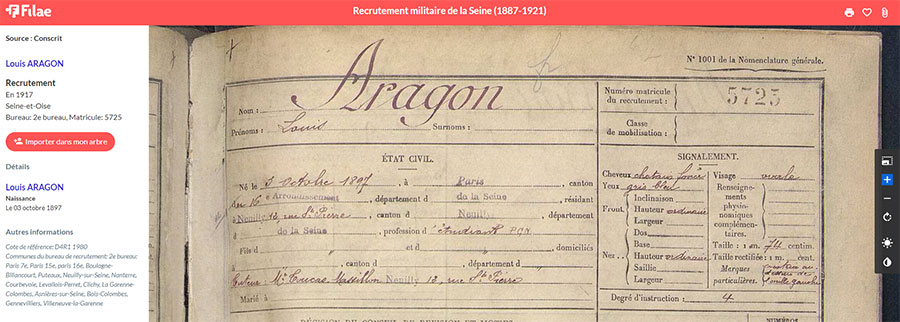 Filae
Recrutement militaire de la Seine (1887-1921)
Source : Conscrit
Louis ARAGON
Recrutement
En 1917
Seine-et-Oise
Bureau: 2e bureau, Matricule: 5725
Importer dans mon arbre
Détails
Louis ARAGON
Naissance
Le 03 octobre 1897
Autres informations
Cote de référence: D4R1 1980
Communes du bureau de recrutement: 2e bureau:
Paris 7e, Paris 15e, paris 16e, Boulogne-
Billancourt, Puteaux, Neuilly-sur-Seine, Nanterre,
Courbevoie, Levallois-Perret, Clichy, La Garenne-
Colombes, Asnières-sur-Seine, Bois-Colombes,
Gennevilliers, Villeneuve-la-Garenne
N° 1001 de la Nomenclature générale.
Nom : Aragon
Prénoms : Louis Surnoms :
Numéro matricule
du recrutement : 5725
Classe
de mobilisation :
ÉTAT CIVIL.
Né le 3 Octobre 1897, à Paris, canton
du 16e Arrondissement, département de la Seine, résidant
à Neuilly 12, rue St Pierre, canton d Neuilly, département
de la Seine, profession d'étudiant PCN
Fils d et d, domiciliés
à, canton d, département d
Tuteur Mr Massillon Neuilly 12, rue St Pierre
Marié à
SIGNALEMENT.
Cheveux chatains foncés Visage ovale
Yeux gris bleu
Front Inclinaison
Hauteur ordinaire
Largeur
Nez Dos
Base
Hauteur ordinaire
Saillie
Largeur
Renseigne-
ments
physio-
nomiques
complémen-
taires.
Taille : 1 m. 74 centim.
Taille rectifiée : 1 m. cent.
Marques
particulières. gauche
Degré d'instruction : 4
DÉCISION DU CONSEIL DE RÉVISION ET MOTIFS
NUMÉROS